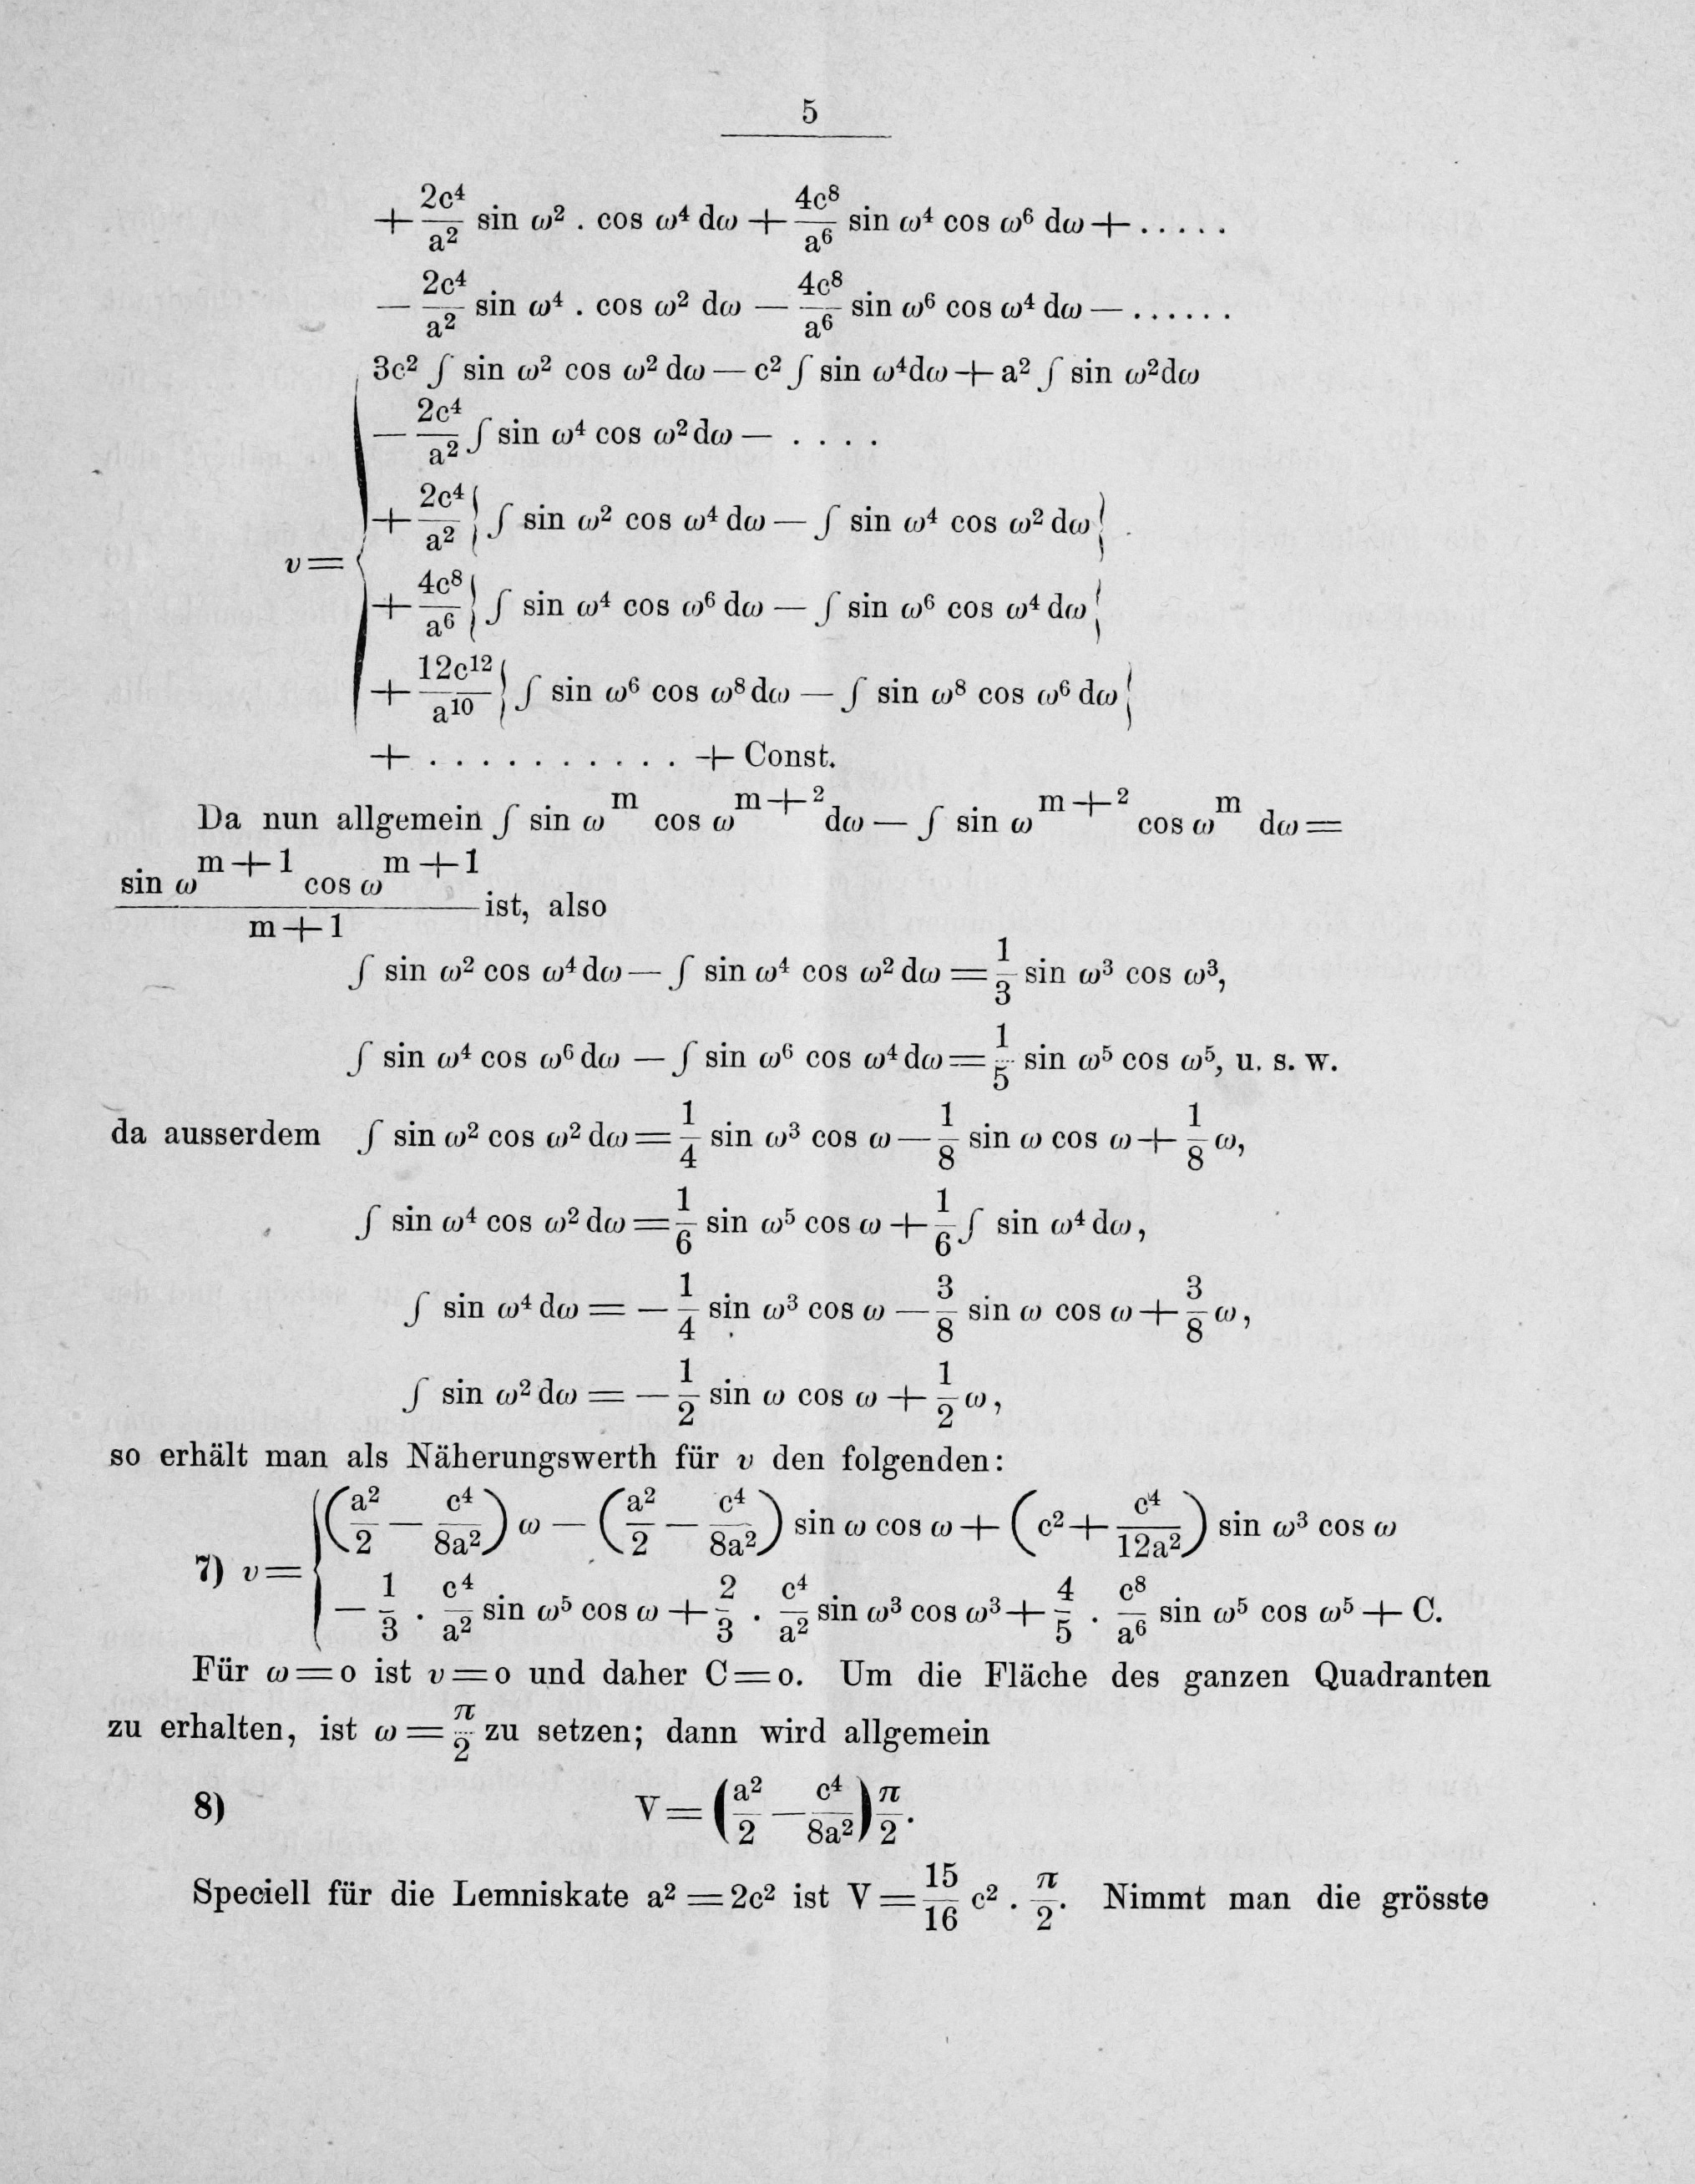 5
+ 2c⁴/a² sin ω² . cos ω⁴ dω + 4c⁸/a⁶ sin ω⁴ cos ω⁶ dω + . . . . .
— 2c⁴/a² sin ω⁴ . cos ω² dω — 4c⁸/a⁶ sin ω⁶ cos ω⁴ dω — . . . . . .
3c² ∫ sin ω² cos ω² dω — c² ∫ sin ω⁴dω + a² ∫ sin ω²dω
— 2c⁴/a² ∫ sin ω⁴ cos ω² dω — . . . .
+ 2c⁴/a² { ∫ sin ω² cos ω⁴ dω — ∫ sin ω⁴ cos ω² dω }
v = { + 4c⁸/a⁶ { ∫ sin ω⁴ cos ω⁶ dω — ∫ sin ω⁶ cos ω⁴ dω }
+ 12c¹²/a¹⁰ { ∫ sin ω⁶ cos ω⁸ dω — ∫ sin ω⁸ cos ω⁶ dω }
+ . . . . . . . . . . + Const.
Da nun allgemein ∫ sin ω^m cos ω^(m+2) dω — ∫ sin ω^(m+2) cos ω^m dω =
sin ω^(m+1) cos ω^(m+1) / m+1 ist, also
∫ sin ω² cos ω⁴ dω — ∫ sin ω⁴ cos ω² dω = 1/3 sin ω³ cos ω³,
∫ sin ω⁴ cos ω⁶ dω — ∫ sin ω⁶ cos ω⁴ dω = 1/5 sin ω⁵ cos ω⁵, u. s. w.
da ausserdem ∫ sin ω² cos ω² dω = 1/4 sin ω³ cos ω — 1/8 sin ω cos ω + 1/8 ω,
∫ sin ω⁴ cos ω² dω = 1/6 sin ω⁵ cos ω + 1/6 ∫ sin ω⁴ dω,
∫ sin ω⁴ dω = — 1/4 sin ω³ cos ω — 3/8 sin ω cos ω + 3/8 ω,
∫ sin ω² dω = — 1/2 sin ω cos ω + 1/2 ω,
so erhält man als Näherungswerth für v den folgenden:
7) v = { (a²/2 — c⁴/8a²) ω — (a²/2 — c⁴/8a²) sin ω cos ω + (c² + c⁴/12a²) sin ω³ cos ω
— 1/3 . c⁴/a² sin ω⁵ cos ω + 2/3 . c⁴/a² sin ω³ cos ω³ + 4/5 . c⁸/a⁶ sin ω⁵ cos ω⁵ + C.
Für ω = o ist v = o und daher C = o. Um die Fläche des ganzen Quadranten
zu erhalten, ist ω = π/2 zu setzen; dann wird allgemein
8) V = (a²/2 — c⁴/8a²) π/2.
Speciell für die Lemniskate a² = 2c² ist V = 15/16 c² . π/2. Nimmt man die grösste